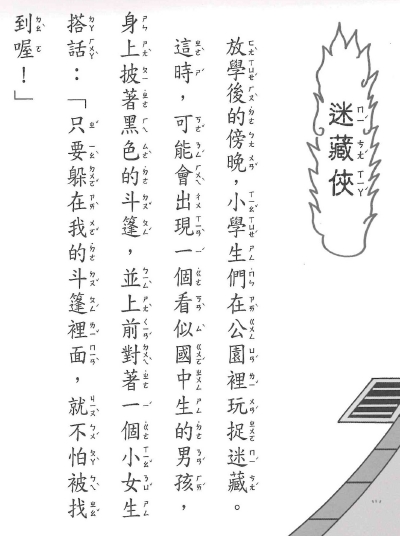 迷藏俠
放學後的傍晚，小學生們在公園裡玩捉迷藏。
這時，可能會出現一個看似國中生的男孩，
身上披著黑色的斗篷，並上前對著一個小女生
搭話：「只要躲在我的斗篷裡面，就不怕被找
到喔！」